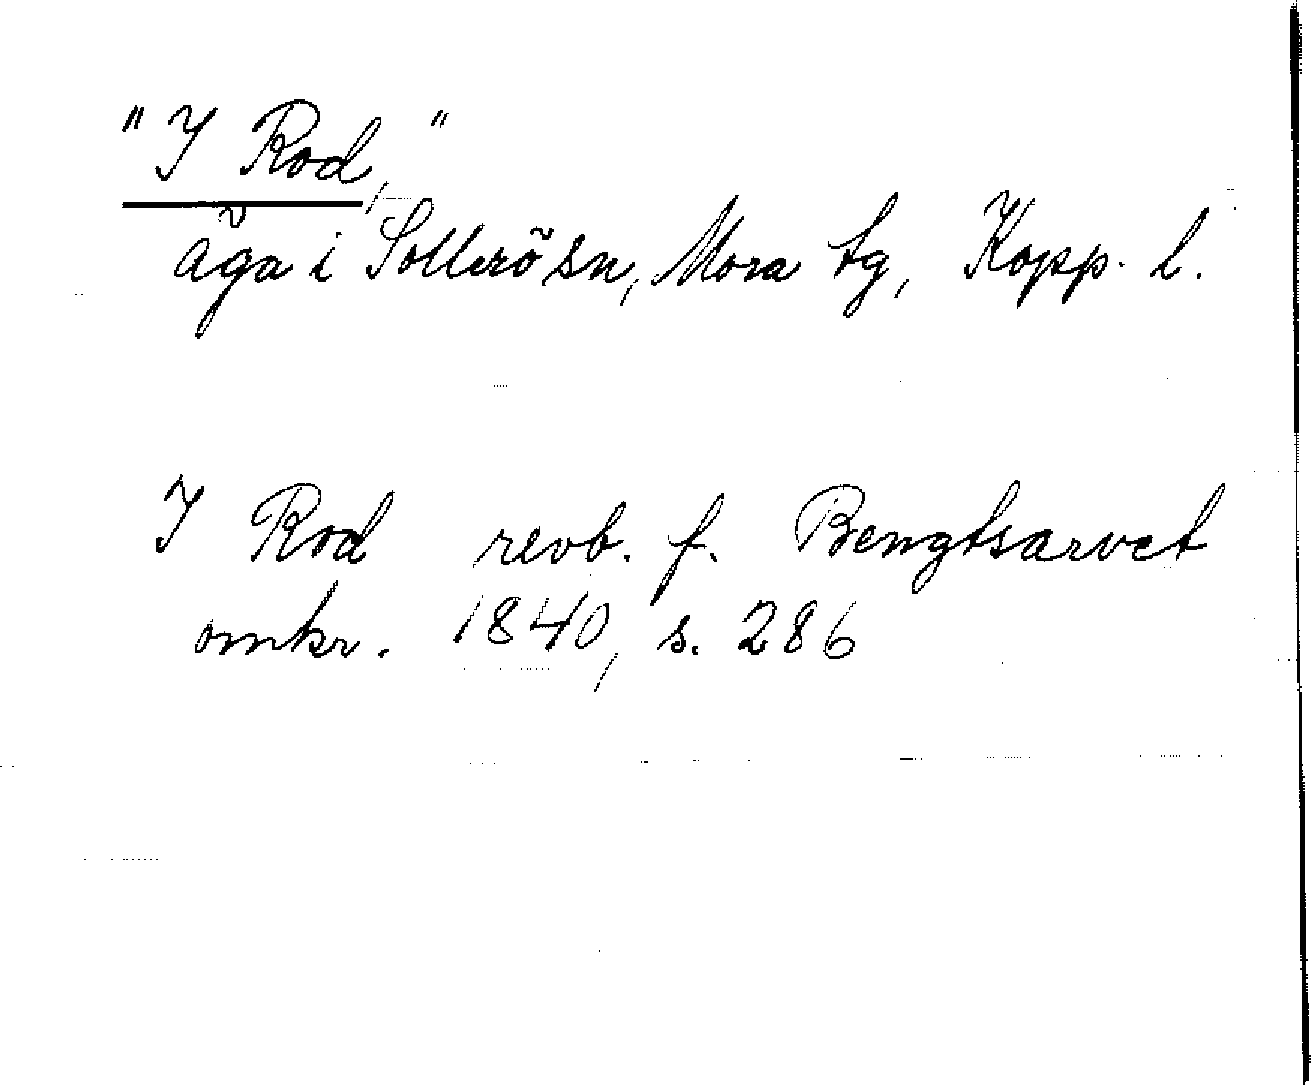 "I Rod,"
äga i Sollerö sn, Mora tg, Kopp. l.
I Rod revb. f. Bengtsarvet
omkr. 1840, s. 286